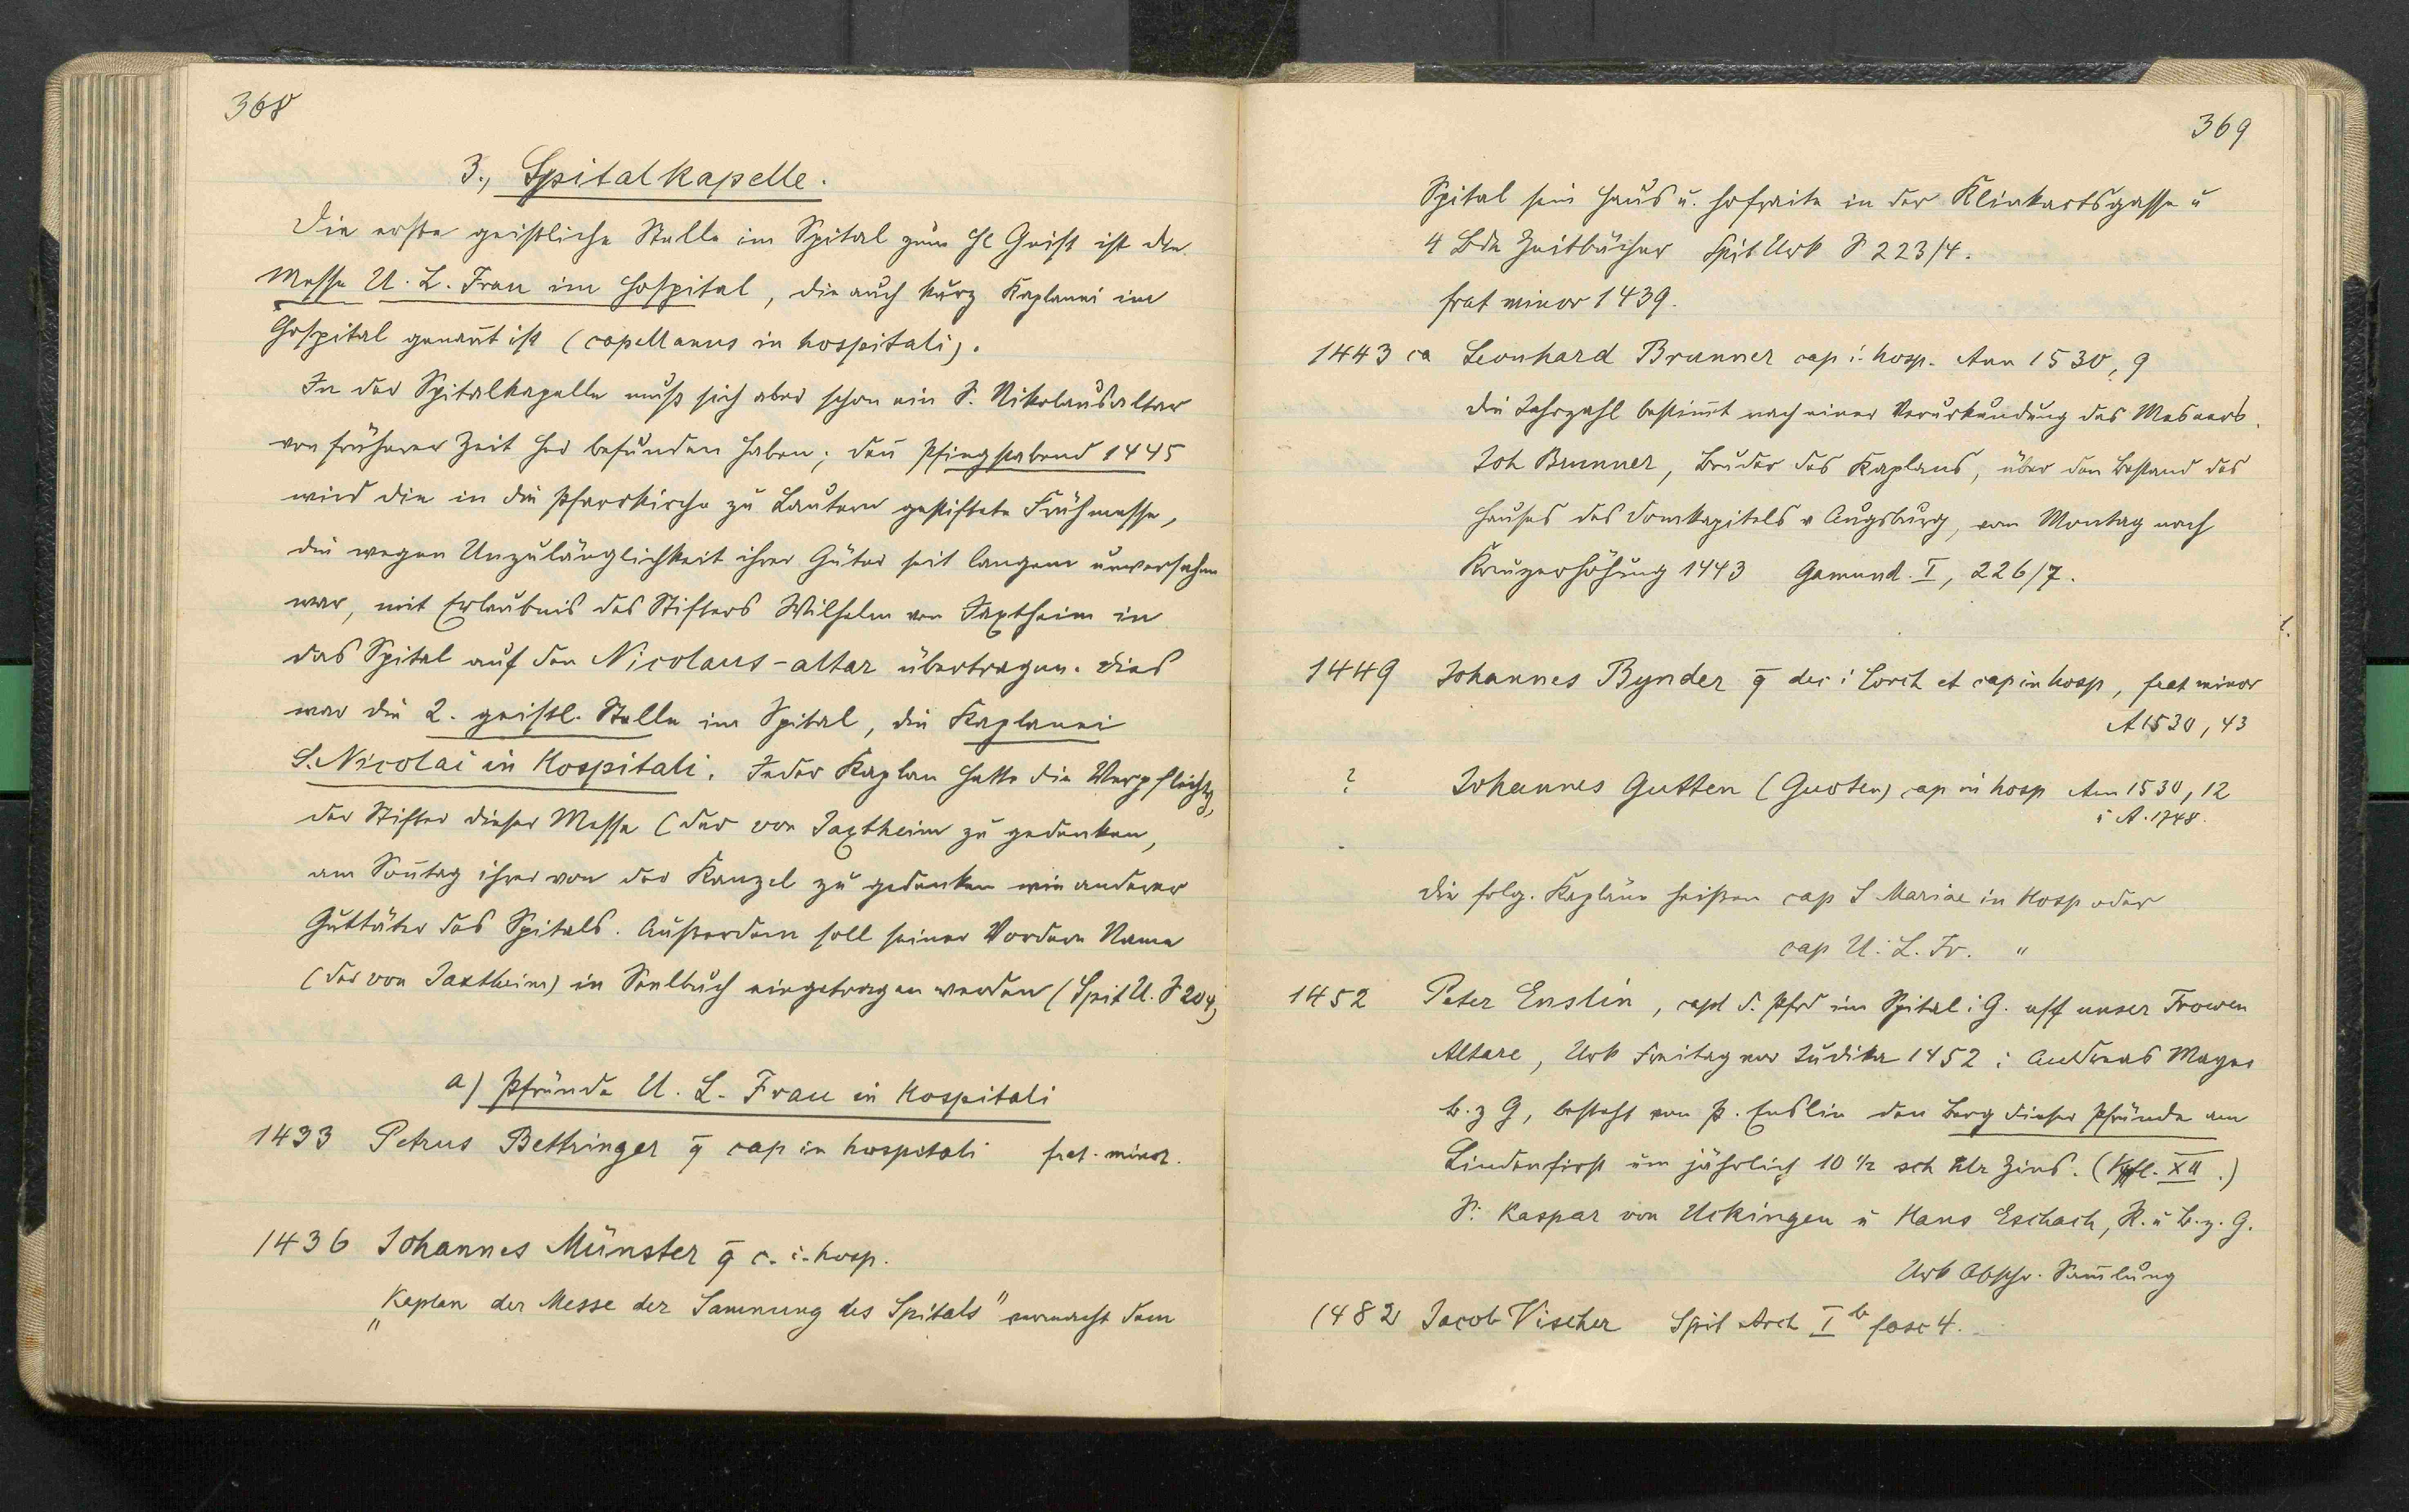 368
3., Spitalkapelle.
Die erste geistliche Stelle im Spital zum Hl Geist ist die
Messe U. L. Frau im Hospital, die auch kurz Kaplanei im
Hospital genannt ist (capellanus in hospitali).
In der Spitalkapelle muß sich aber schon ein S. Nikolausaltar
von früherer Zeit her befunden haben; denn Pfingstabend 1445
wird die in die Pfarrkirche zu Lautern gestiftete Frühmesse,
die wegen Unzulänglichkeit ihrer Güter seit langem unversehen
war, mit Erlaubnis des Stifters Wilhelm von Jaxtheim in
das Spital auf den Nicolaus-altar übertragen. Dies
war die 2. geistl. Stelle im Spital, die Kaplanei
S. Nicolai in Hospitali. Jeder Kaplan hatte die Verpflichtg,
der Stifter dieser Messe (der von Jaxtheim zu gedenken,
am Sonntag ihrer von der Kanzel zu gedenken wie anderer
Guttäter des Spitals. Außerdem soll seiner Vordern Name
(der von Jaxtheim) in Seelbuch eingetragen werden (Spit U. S 204)
a) Pfründe U. L. Frau in Hospitali
1433 Petrus Bettringer q̄ cap in hospitali frat. minor.
1436 Johannes Münster q̄ c. i. hosp.
"Kaplan der Messe der Samnung des Spitals" vermacht dem
369
Spital sein Haus u. Hofraite in der Klinkartsgasse u
4 Bde Zeitbücher Spit Urk S 223/4.
frat minor 1439.
1443 ca Leonhard Brunner cap i. hosp. Ann 1530, 9
die Jahrzahl bestimmt nach einer Verurkundung des Mesners
Joh Brunner, Bruder des Kaplans, über den Bestand des
Hauses des Domkapitels v Augsburg, vom Montag nach
Kreuzerhöhung 1443 Gamund. I, 226/7.
1449 Johannes Bynder q̄ dec i Lorch et cap in hosp, frat minor
A 1530, 43
? Johannes Gutten (Guoten) cap in hosp Ann 1530, 12
i A. 1748.
Die folg. Kapläne heißen cap S Mariae in Hosp oder
cap U. L. Fr. "
1452 Peter Enslin, capl d. Pfrd im Spital i G. uff unser Frowen
Altare, Urk Freitag vor Judika 1452: Andreas Mayer
b. z G, besteht von P. Enslin den Berg dieser Pfründe am
Lindenfirst um jährlich 10 1/2 sch hlr Zins. (XII.)
S: Kaspar von Uckingen u Hans Eschach, R. u b. z. G.
Urk Abschr. Sammlung
1482 Jacob Vischer Spit Arch I b fasc 4.